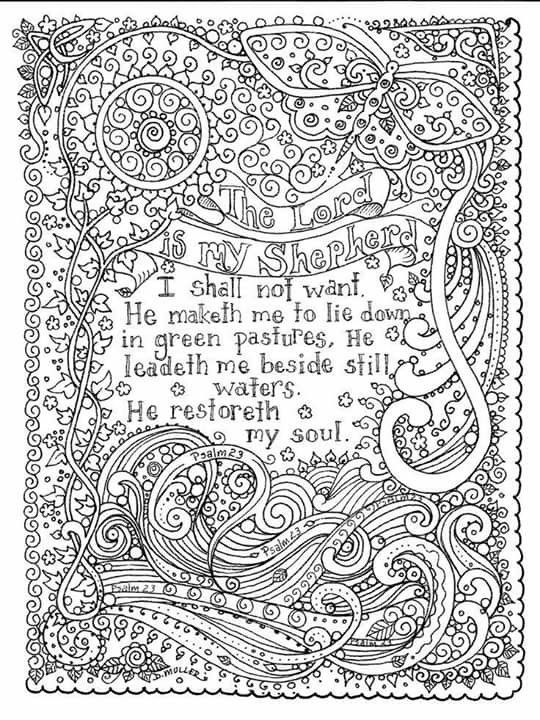 The Lord
is my Shepherd
I shall not want.
He maketh me to lie down
in green pastures, He
leadeth me beside still
waters.
He restoreth
my soul.
Psalm 23
Psalm 23
Psalm 23
Psalm 23
Psalm 23
D. MULLER